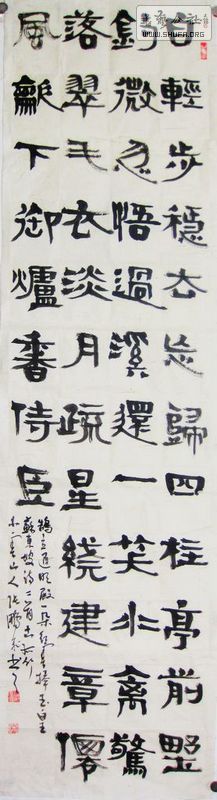 輕步穩去忘歸四柱亭前野
釣微忽悟過溪還一笑水禽驚
落翠毛衣淡月疏星繞建章僊
風龡下御爐香侍臣
鵠立通明殿一朵紅雲捧玉皇
蘇東坡詩二首
山人張鵬
WWW.SHUFA.ORG